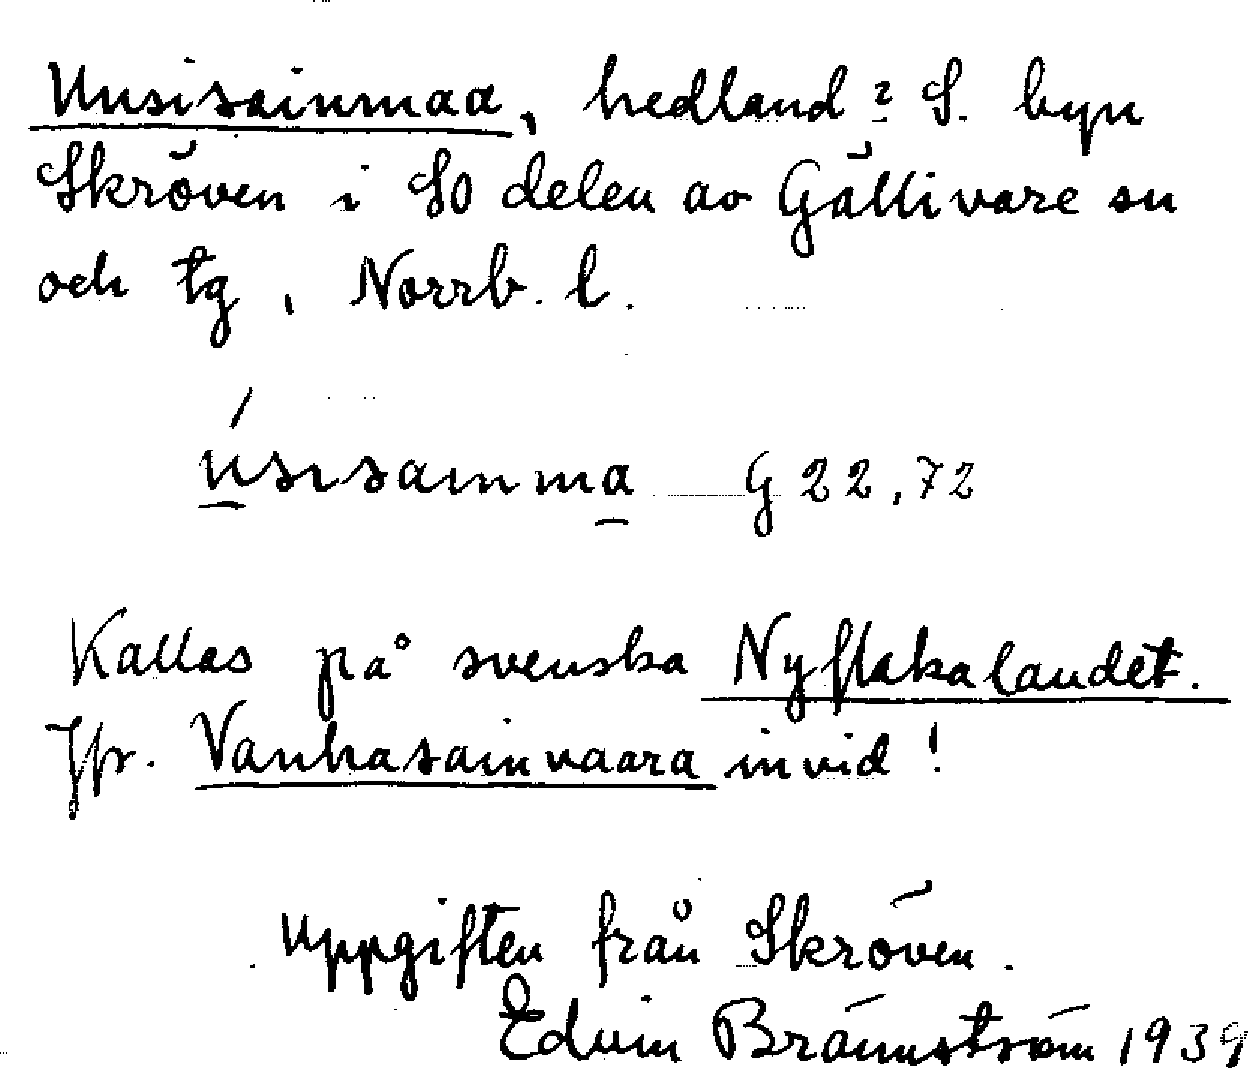 Uusisainmaa, hedland? S. byn
Skröven i SO delen av Gällivare sn
och tg, Norrb. l.
úsisainma G 22,72
Kallas på svenska Nyflakalandet.
Jfr. Vanhasainvaara invid!
Uppgiften från Skröven.
Edvin Brännström 1939